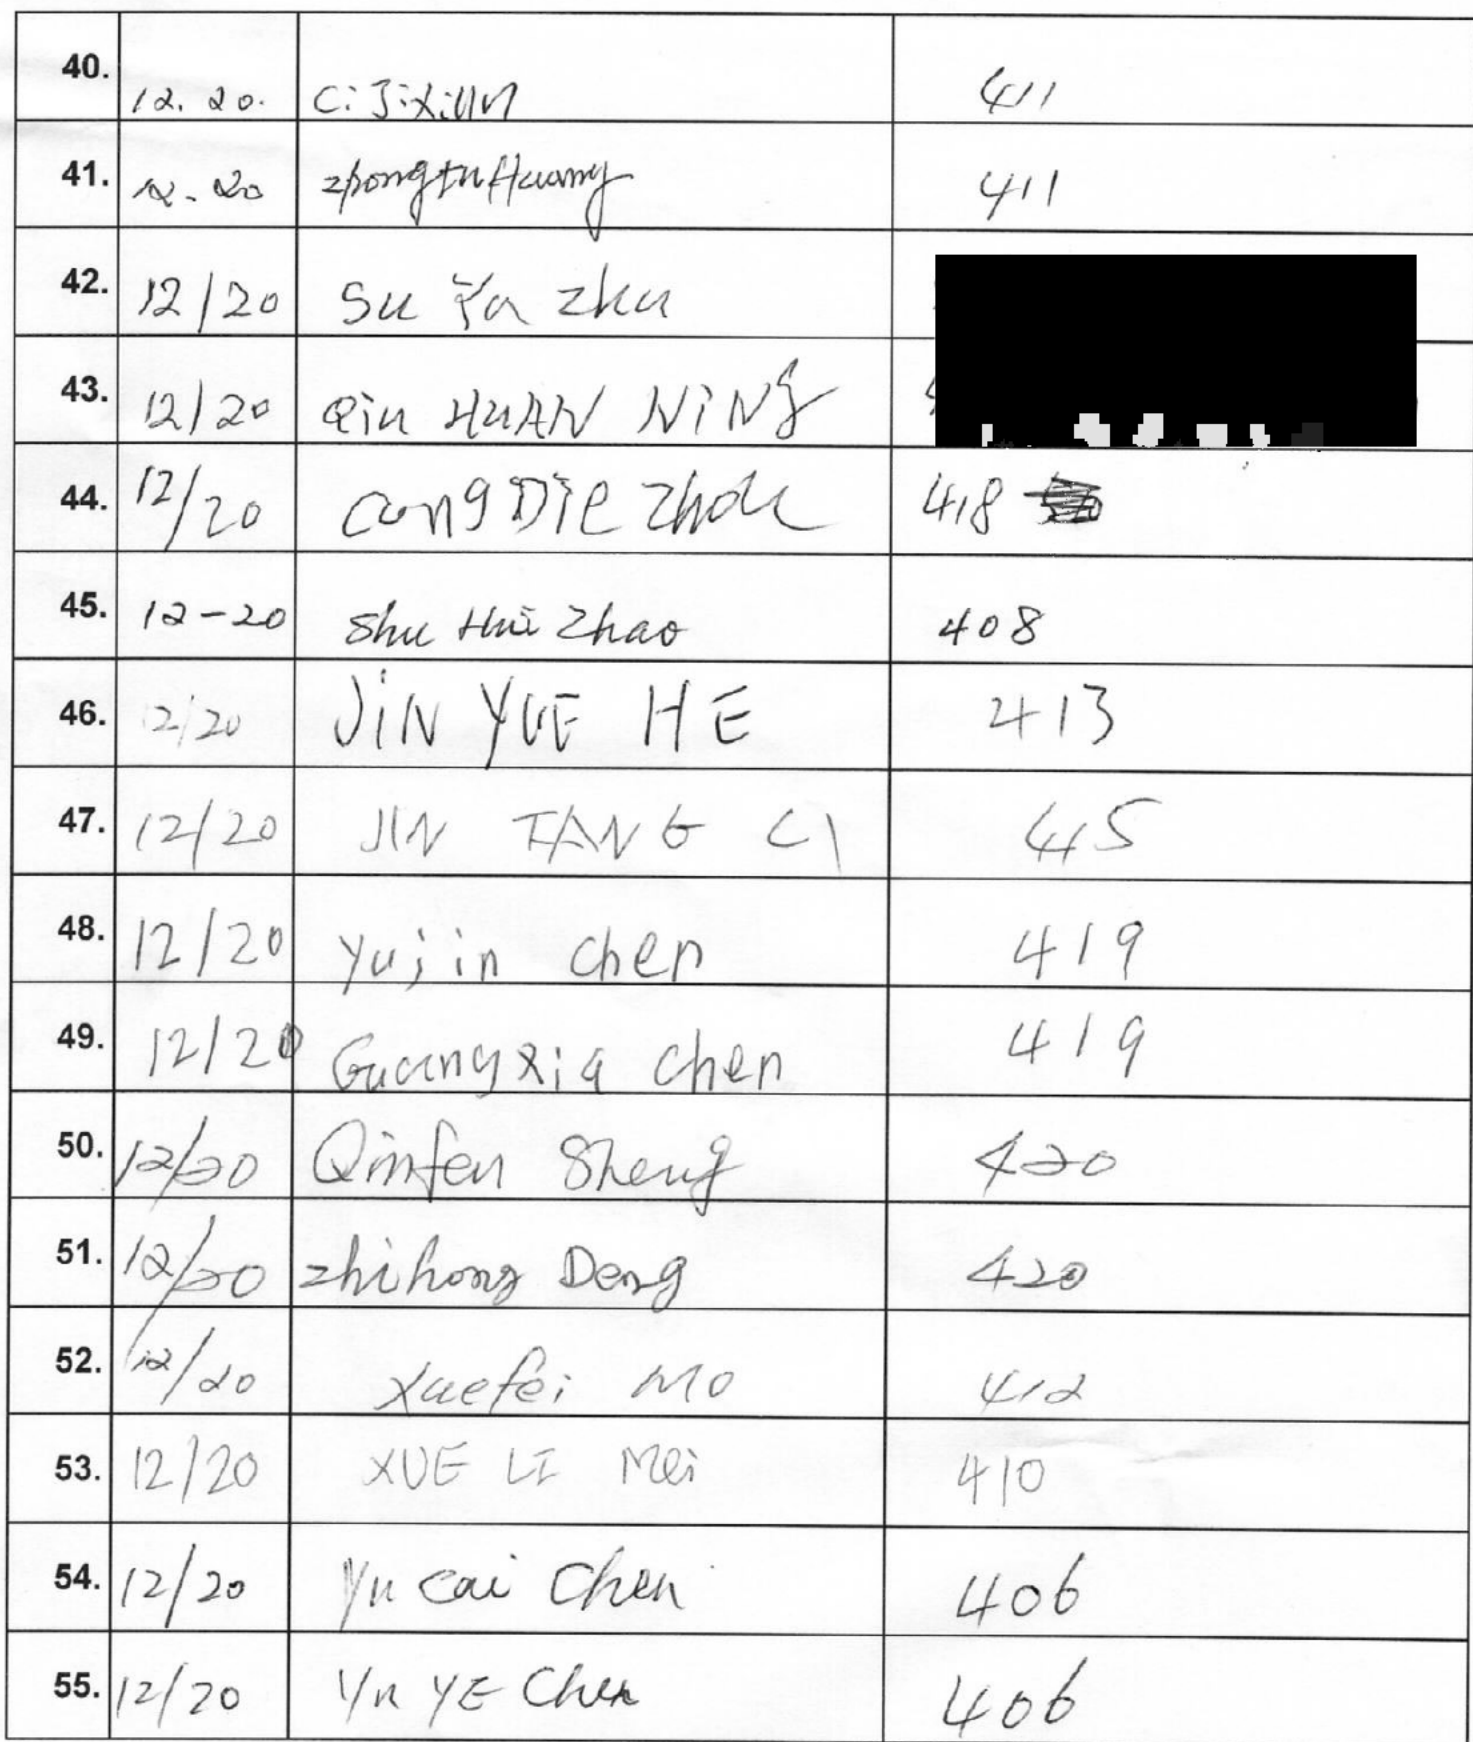 40. 12. 20. Ci Jixian 411
41. 12. 20 zhongtu Huang 411
42. 12/20 Su Ya zhu
43. 12/20 Qiu HUAN NiNg
44. 12/20 Cang Die Zhou 418
45. 12-20 Shu Hui Zhao 408
46. 12/20 JiN YUE HE 413
47. 12/20 JIN TANG CI 415
48. 12/20 Yujin chen 419
49. 12/20 Guangxia chen 419
50. 12/20 Qinfen Sheng 420
51. 12/20 zhihong Deng 420
52. 12/20 Xuefei MO 412
53. 12/20 XUE LI Mei 410
54. 12/20 Yu cai Chen 406
55. 12/20 Yu YE Chen 406